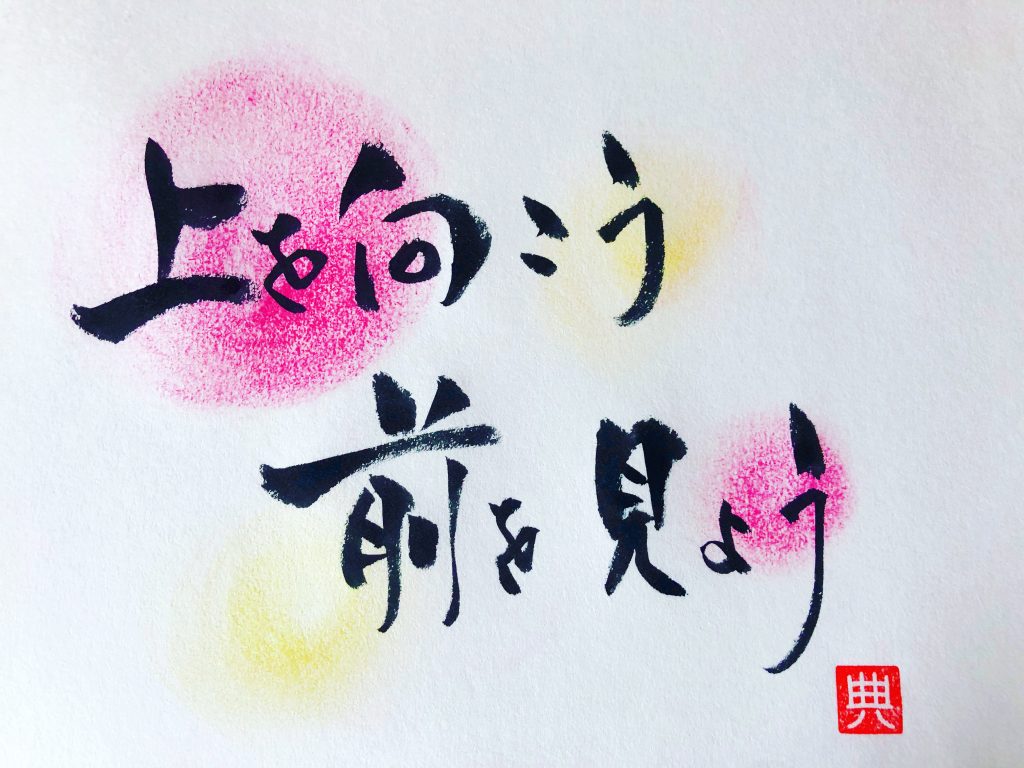 上を向こう
前を見よう
典